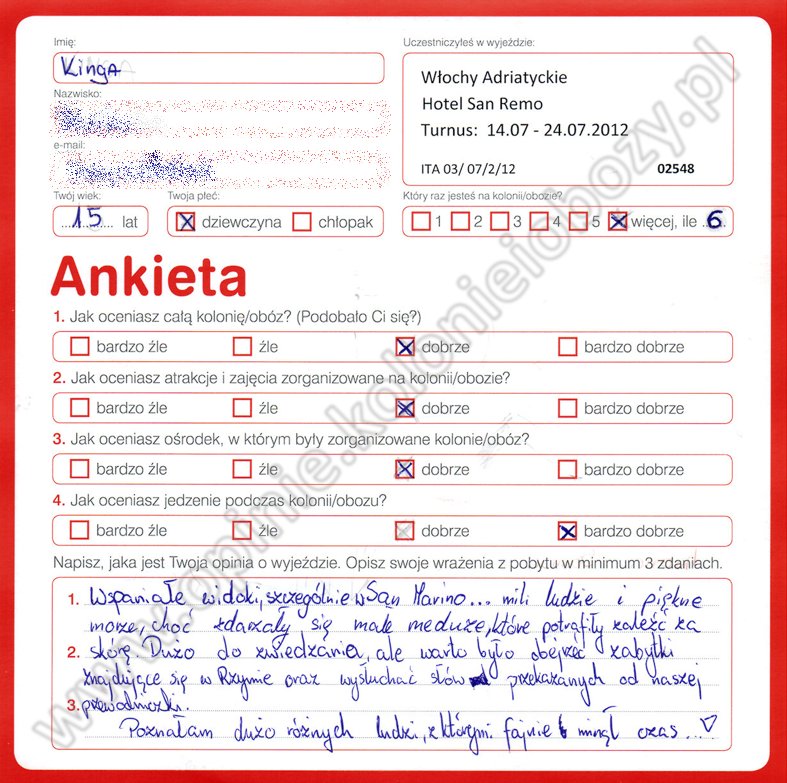 Imię:
Kinga
Nazwisko:
e-mail:
Uczestniczyłeś w wyjeździe:
Włochy Adriatyckie
Hotel San Remo
Turnus: 14.07 - 24.07.2012
ITA 03/ 07/2/12 02548
Twój wiek:
15 lat
Twoja płeć:
dziewczyna chłopak
Który raz jesteś na kolonii/obozie?
1 2 3 4 5 więcej, ile 6
Ankieta
1. Jak oceniasz całą kolonię/obóz? (Podobało Ci się?)
bardzo źle źle dobrze bardzo dobrze
2. Jak oceniasz atrakcje i zajęcia zorganizowane na kolonii/obozie?
bardzo źle źle dobrze bardzo dobrze
3. Jak oceniasz ośrodek, w którym były zorganizowane kolonie/obóz?
bardzo źle źle dobrze bardzo dobrze
4. Jak oceniasz jedzenie podczas kolonii/obozu?
bardzo źle źle dobrze bardzo dobrze
Napisz, jaka jest Twoja opinia o wyjeździe. Opisz swoje wrażenia z pobytu w minimum 3 zdaniach.
1. Wspaniałe widoki, szczególnie w San Marino... mili ludzie i piękne
morze, choć zdarzały się małe meduze, które potrafiły zaleźć za
2. skórę. Dużo do zwiedzania, ale warto było obejrzeć zabytki
znajdujące się w Rzymie oraz wysłuchać słów przekazanych od naszej
3. przewodniczki.
Poznałam dużo różnych ludzi, z którymi fajnie minął czas... ♡
www.opinie.kolonieiobozy.pl